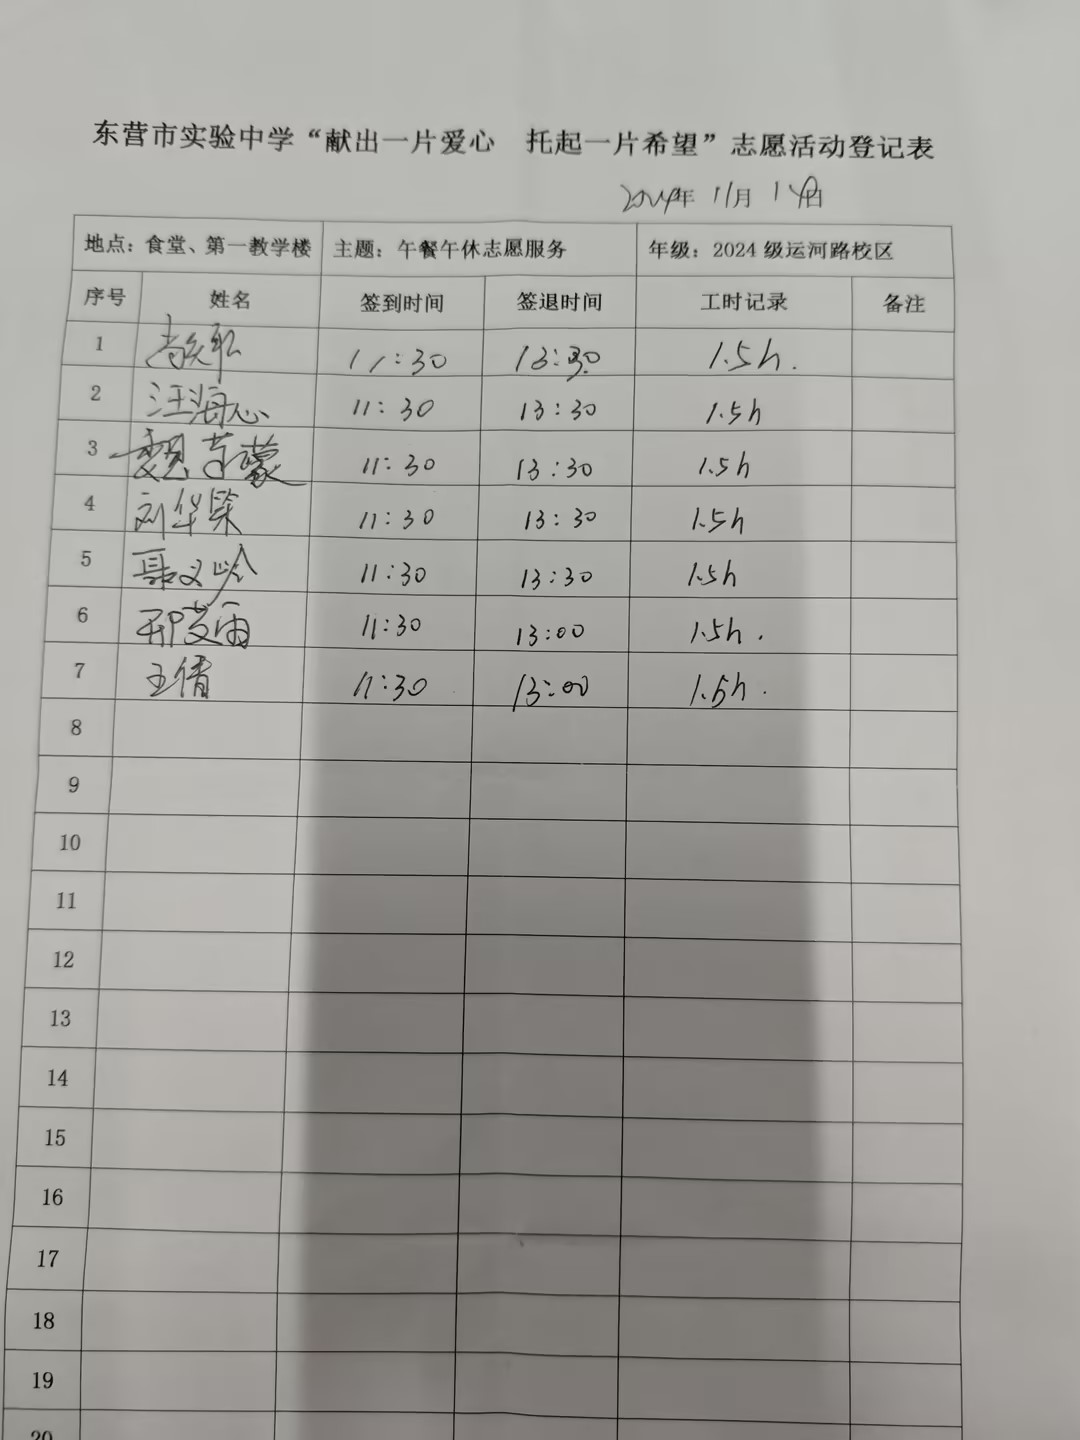 东营市实验中学“献出一片爱心 托起一片希望”志愿活动登记表
2024年 11月 14日
地点：食堂、第一教学楼 主题：午餐午休志愿服务 年级：2024 级运河路校区
序号 姓名 签到时间 签退时间 工时记录 备注
1 11:30 13:30 1.5h.
2 汪海心 11:30 13:30 1.5h
3 魏 蒙 11:30 13:30 1.5h
4 刘华荣 11:30 13:30 1.5h
5 聂文岭 11:30 13:30 1.5h
6 邢 雨 11:30 13:00 1.5h.
7 王倩 11:30 13:00 1.5h.
8
9
10
11
12
13
14
15
16
17
18
19
20